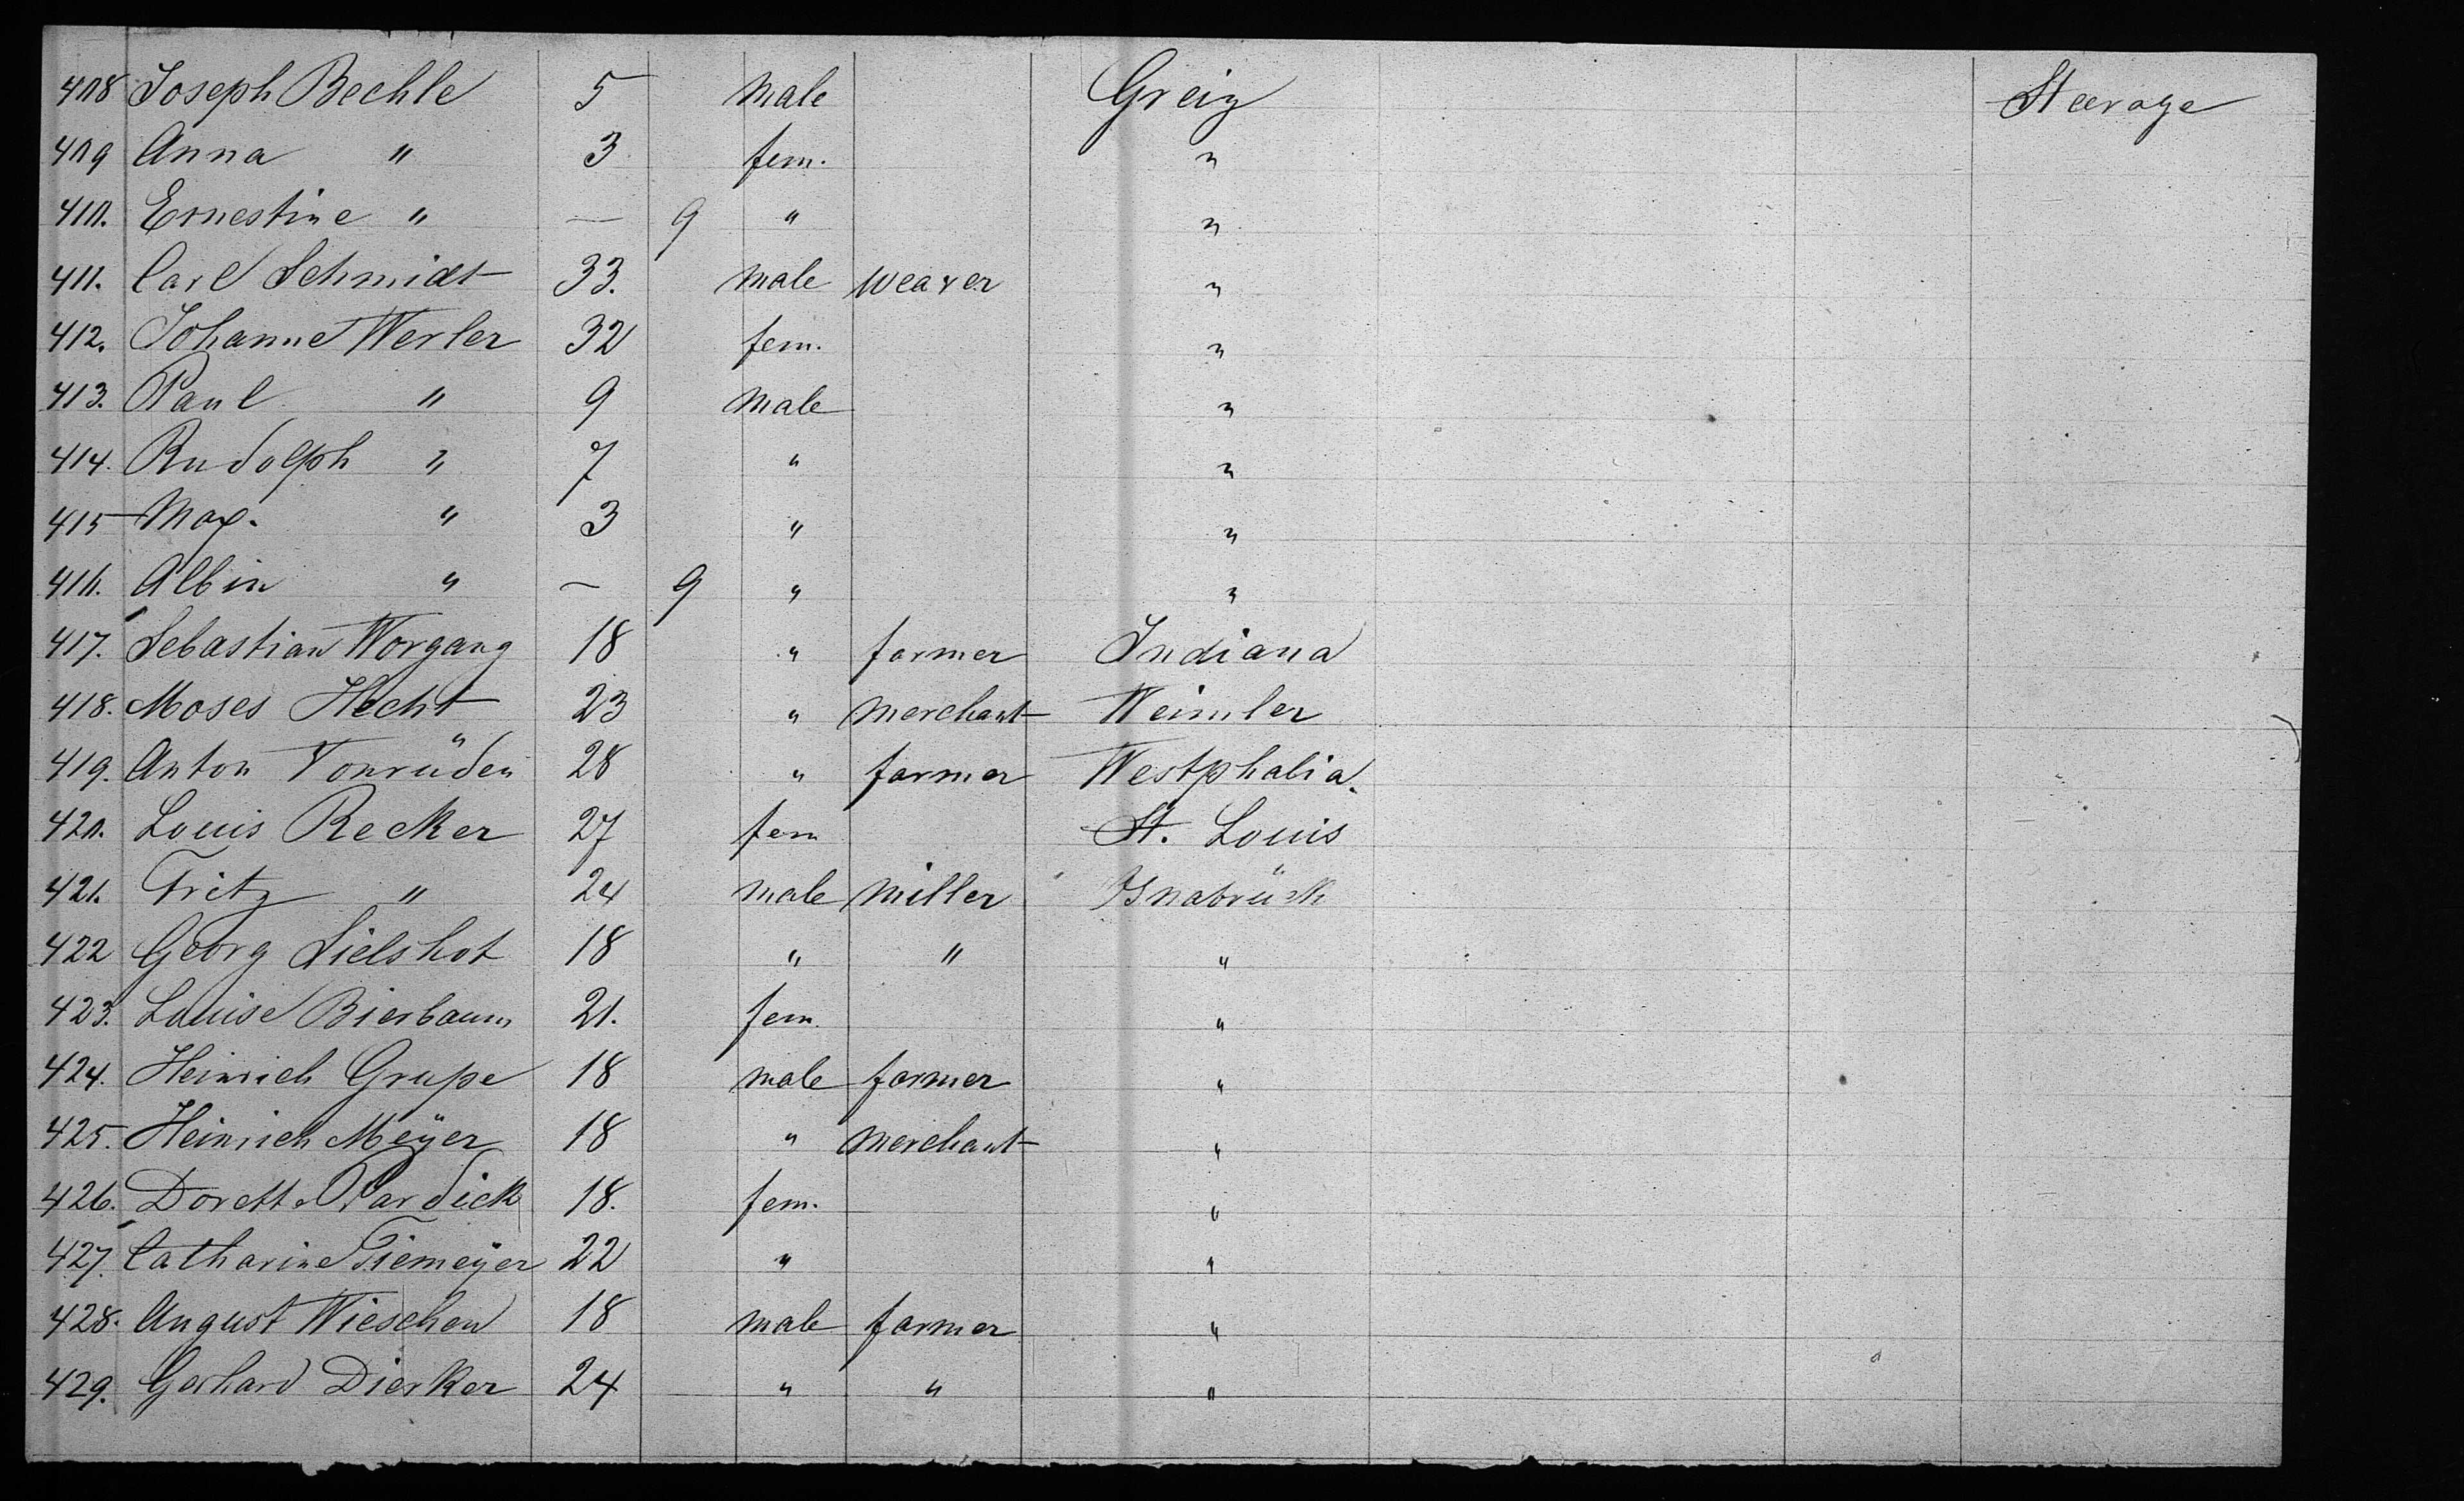 408 Joseph Bechle 5 male Greiz Steerage
409 Anna " 3 fem. "
410. Ernestine " — 9 " "
411. Carl Schmidt 33. male weaver "
412. Johanne Werler 32 fem. "
413. Paul " 9 male "
414. Rudolph " 7 " "
415 Max. " 3 " "
416. Albin " — 9 " "
417. Sebastian Worgang 18 " farmer Indiana
418. Moses Hecht 23 " merchant Weimler
419. Anton Vonrüden 28 " farmer Westphalia.
420. Louis Recker 27 fem St. Louis
421. Fritz " 24 male miller Osnabrück
422 Georg Sielshot 18 " " "
423. Louise Bierbaum 21. fem. "
424. Heinrich Grupe 18 male farmer "
425. Heinrich Meÿer 18 " merchant "
426. Dorette Pardick 18. fem. "
427. Catharine Tiemeÿer 22 " "
428. August Wieschen 18 male farmer "
429. Gerhard Dierker 24 " " "